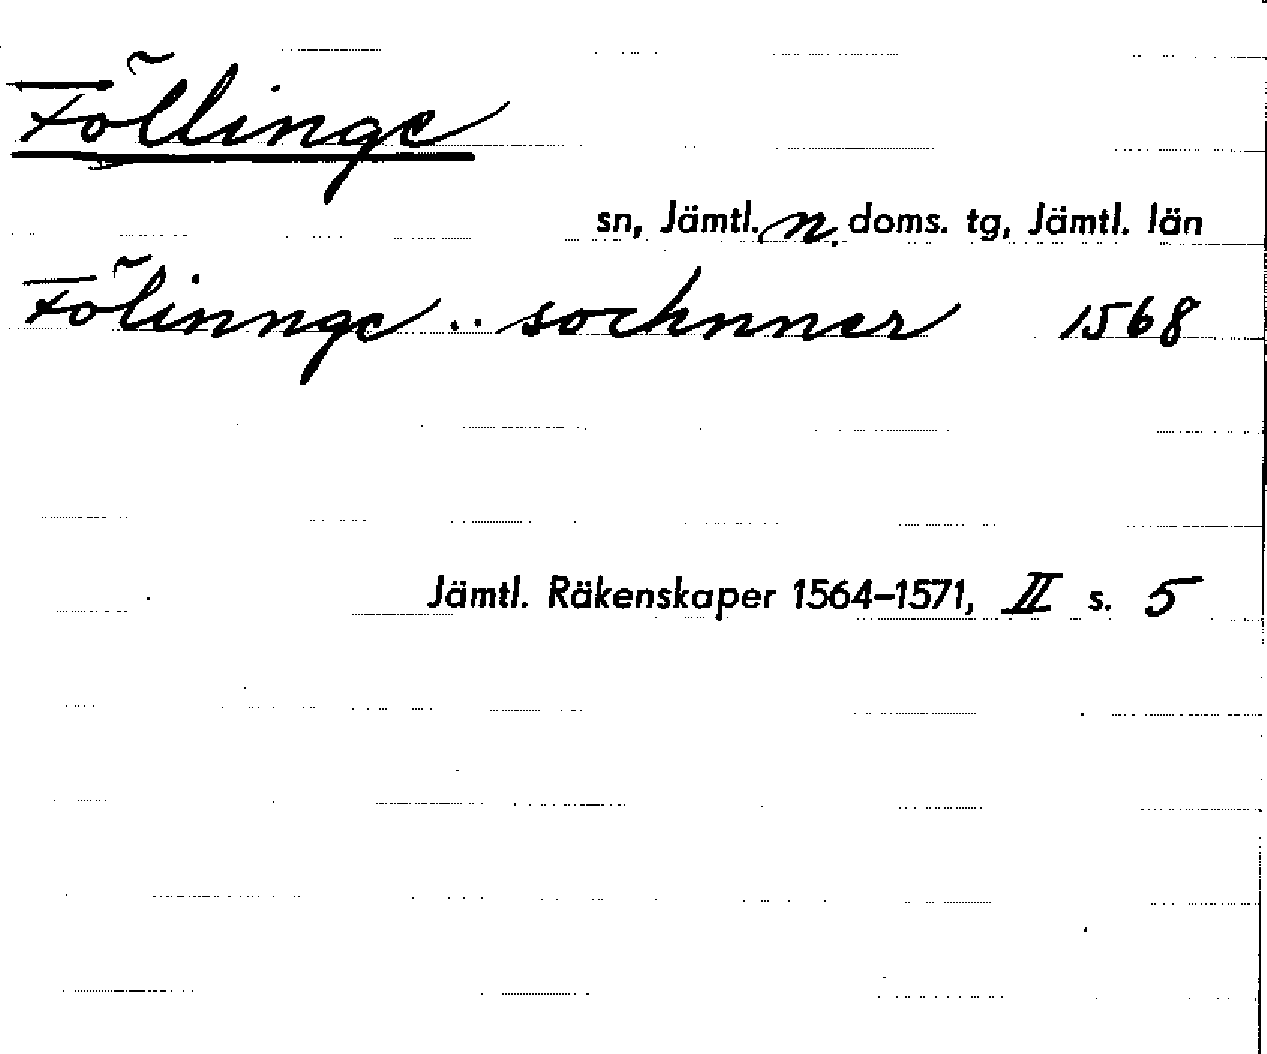 Föllinge
sn, Jämtl. n. doms. tg, Jämtl. län
Fölinnge .. sochnner 1568
Jämtl. Räkenskaper 1564–1571, II s. 5